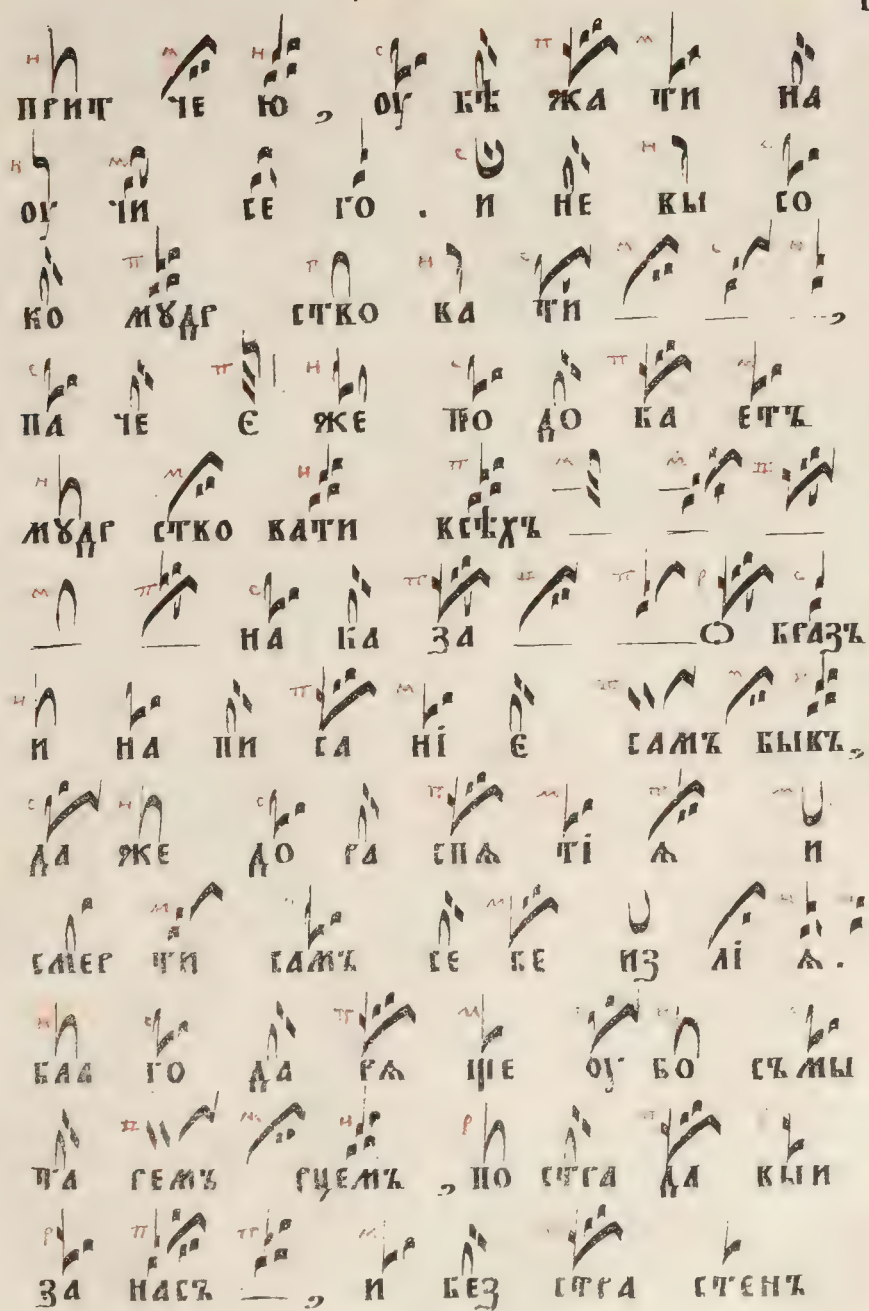 прит че ю , оу бѣ жа ти на
оу чи се го . и не вы со
ко мꙋдр ство ва ти — — — ,
па че є же по до ба етъ
мꙋдр ство вати всѣхъ — — —
— — на ка за — — ѡ бразъ
и на пи са ні є самъ бывъ ,
да же до ра спѧ ті ѧ и
смер ти самъ се бе из лі ѧ .
бла го да рѧ ще оу бо съмы
та гемъ рцемъ , по стра да выи
за насъ — , и без стра стенъ